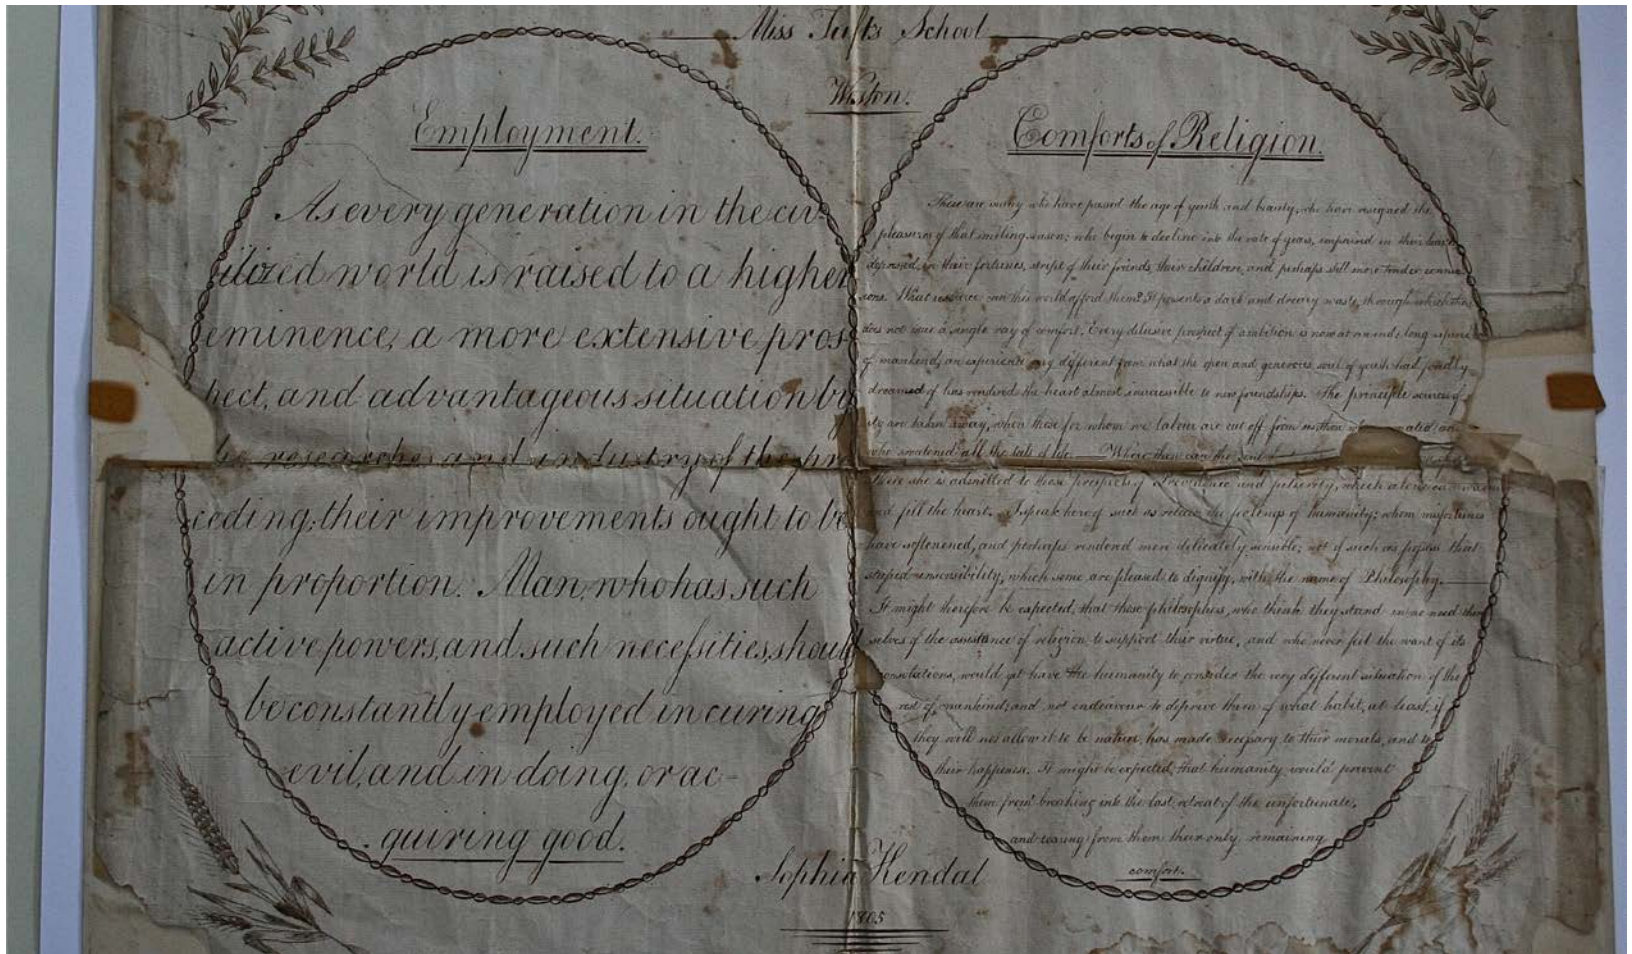 Miss Tufts School
Weston.
Employment.
As every generation in the civ-
ilized world is raised to a higher
eminence, a more extensive pros-
pect, and advantageous situation by
he researches and industry of the pre
ceding; their improvements ought to be
in proportion. Man, who has such
active powers, and such necessities, should
be constantly employed in curing
evil, and in doing, or ac-
quiring good.
Comforts of Religion.
There are many who have passed the age of youth and beauty, who have resigned the
pleasures of that smiling season; who begin to decline into the vale of years, impaired in their
depressed in their fortunes, stript of their friends, their children, and perhaps still more tender connex
ions. What resource can this world afford them? It presents a dark and dreary waste, through which there
does not issue a single ray of comfort. Every delusive prospect of ambition is now at an end; long experi
of mankind, an experience very different from what the open and generous soul of youth had fondly
dreamed of has rendered the heart almost inaccessible to new friendships. The principle sources of
ity are taken away, when those for whom we labour are cut off from us, those who
who sweetened all the toils of life. — Where then can the soul
There she is admitted to those prospects of Providence and futurity, which alone can warm
and fill the heart. I speak here of such as retain the feelings of humanity; whom misfortunes
have softenened, and perhaps rendered more delicately sensible; not of such as possess that
stupid insensibility, which some are pleased to dignify, with the name of Philosophy. —
It might therefore be expected, that those philosophers, who think they stand in no need them
selves of the assistance of religion to support their virtue, and who never feel the want of its
consolations, would yet have the humanity to consider the very different situation of the
rest of mankind; and not endeavour to deprive them of what habit, at least, if
they will not allow it to be nature, has made necessary to their morals, and to
their happiness. It might be expected, that humanity would prevent
them from breaking into the last retreat of the unfortunate,
and tearing from them their only remaining
comfort.
Sophia Kendal
1805